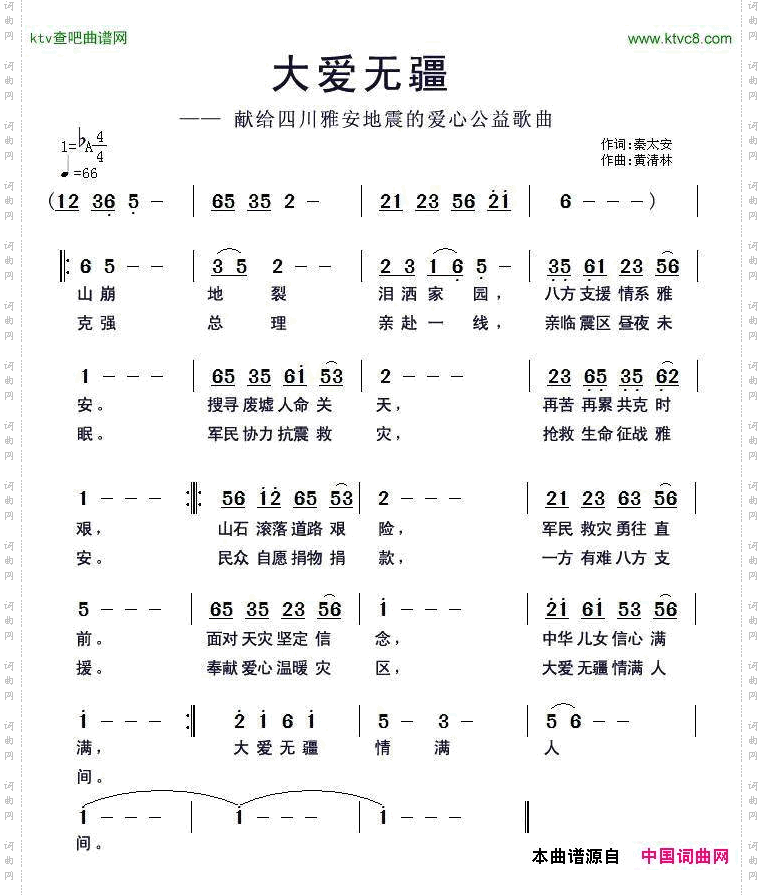 ktv查吧曲谱网
www.ktvc8.com
大爱无疆
—— 献给四川雅安地震的爱心公益歌曲
1=♭A 4/4
作词:秦太安
♩=66
作曲:黄清林
(12 36 5 － 65 35 2 － 21 23 56 21 6 － － －)
6 5 － － 3 5 2 － － 2 3 1 6 5 － 35 61 23 56
山 崩 地 裂 泪 洒 家 园， 八方 支援 情系 雅
克 强 总 理 亲 赴 一 线， 亲临 震区 昼夜 未
1 － － － 65 35 61 53 2 － － 23 65 35 62
安。 搜寻 废墟 人命 关 天， 再苦 再累 共克 时
眠。 军民 协力 抗震 救 灾， 抢救 生命 征战 雅
1 － － － 56 12 65 53 2 － － － 21 23 63 56
艰， 山石 滚落 道路 艰 险， 军民 救灾 勇往 直
安。 民众 自愿 捐物 捐 款， 一方 有难 八方 支
5 － － － 65 35 23 56 1 － － － 21 61 53 56
前。 面对 天灾 坚定 信 念， 中华 儿女 信心 满
援。 奉献 爱心 温暖 灾 区， 大爱 无疆 情满 人
1 － － － 2 1 6 1 5 － 3 － 5 6 － －
满， 大 爱 无 疆 情 满 人
间。
1 － － － 1 － － － 1 － － －
间。
本曲谱源自 中国词曲网